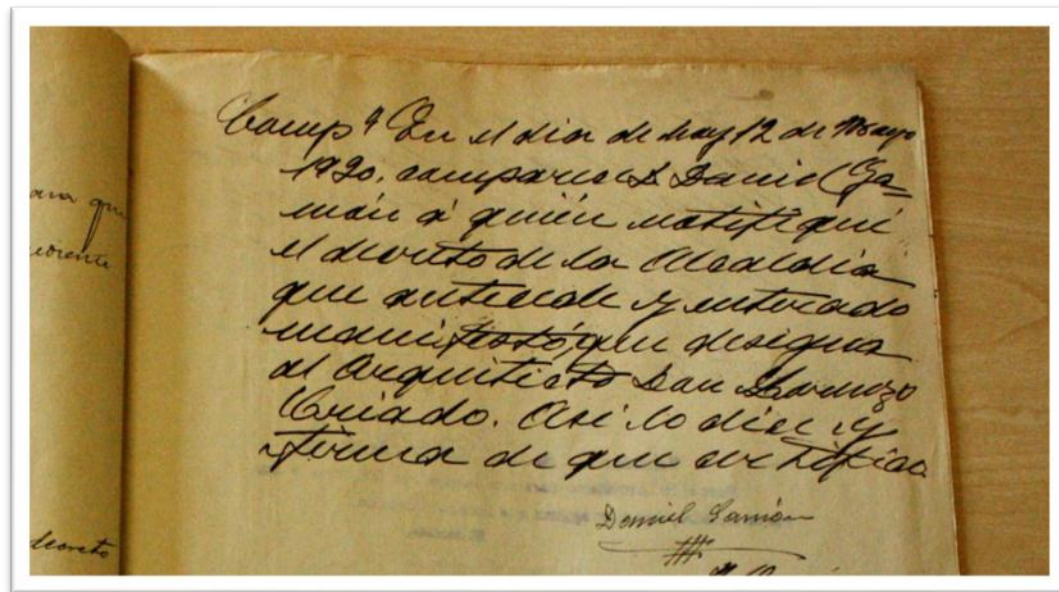 ara que
ediente
decreto
Compª En el dia de hoy 12 de Mayo
1920, comparece D. Daniel Ga-
món á quién notifiqué
el decreto de la Alcaldia
que antecede y enterado
manifestó, que designa
al Arquitecto Don Lorenzo
Criado. Asi lo dice y
firma de que certifico.
Daniel Gamón